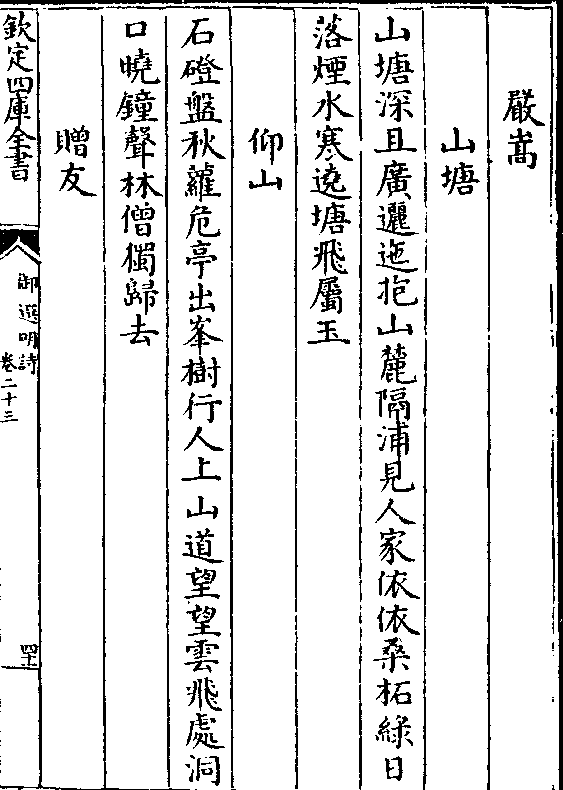 嚴嵩
山塘
山塘深且廣邐迤抱山麓隔浦見人家依依桑柘綠日
落煙水寒遶塘飛屬玉
仰山
石磴盤秋蘿危亭出峯樹行人上山道望望雲飛處洞
口曉鐘聲林僧獨歸去
贈友
欽定四庫全書
御選明詩
卷二十三